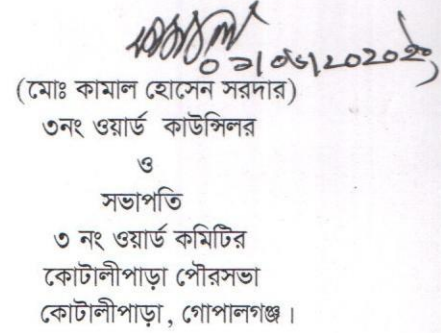 (মোঃ কামাল হোসেন সরদার)
৩নং ওয়ার্ড কাউন্সিলর
ও
সভাপতি
৩ নং ওয়ার্ড কমিটির
কোটালীপাড়া পৌরসভা
কোটালীপাড়া, গোপালগঞ্জ।